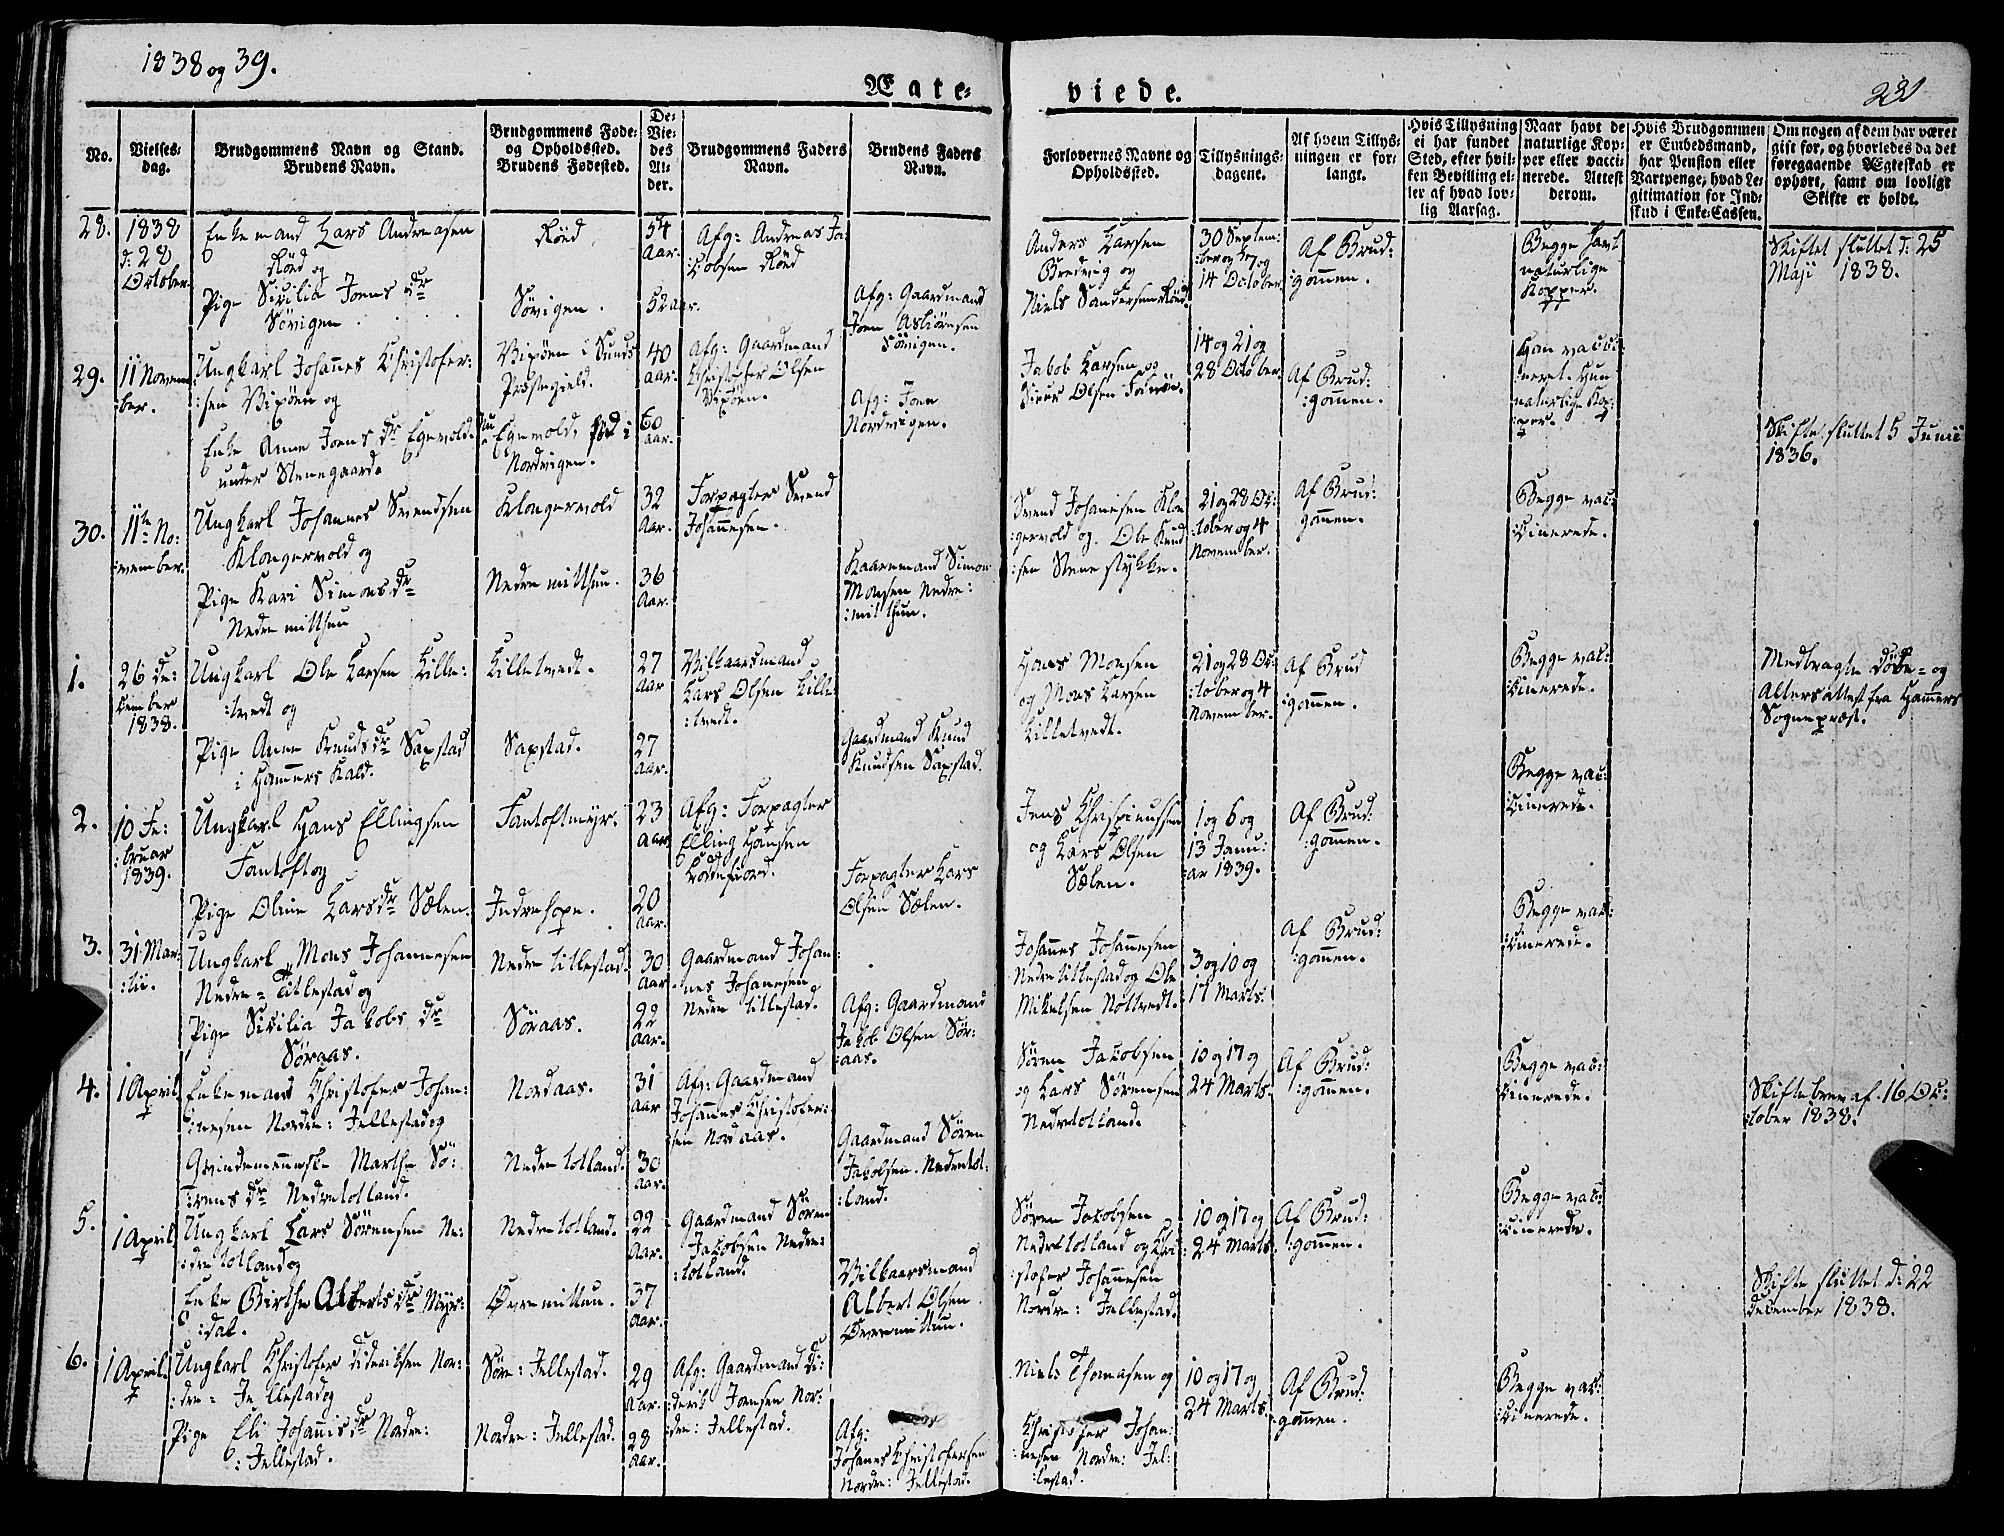 1838 og 39.
Ægte-
viede.
231
No.
Vielses-
dag.
Brudgommens Navn og Stand.
Brudens Navn.
Brudgommens Føde-
og Opholdssted.
Brudens Fødested.
De
Vie-
des
Al-
der.
Brudgommens Faders
Navn.
Brudens Faders
Navn.
Forlovernes Navne og
Opholdssted.
Tillysnings-
dagene.
Af hvem Tillys-
ningen er for-
langt.
Hvis Tillysning
ei har fundet
Sted, efter hvil-
ken Bevilling el-
ler af hvad lov-
lig Aarsag.
Naar havt de
naturlige Kop-
per eller vacci-
nerede. Attest
derom.
Hvis Brudgommen
er Embedsmand,
har Pension eller
Vartpenge, hvad Le-
gitimation for Ind-
skud i Enke-Cassen.
Om nogen af dem har været
gift før, og hvorledes da det
foregaaende Ægteskab er
ophørt, samt om lovligt
Skifte er holdt.
28.
1838
d: 28
October.
Enkemand Lars Andreasen
Röed og
Pige Sicilia Joens dr
Sövigen
Röed
Sövigen.
54
Aar.
52 aar.
Afg: Andreas Ja:
:cobsen Röed
Afg: Gaardmand
Joen Asbiörnsen
Sövigen.
Anders Larsen
Bredvig og
Niels Sandersen Röed
30 Septem:
:ber og 7 og
14 October.
Af Brud:
:gommen.
Begge havt
naturlige
Kopper.
Skiftet sluttet d: 25
Maji 1838.
29.
11 Novem
:ber.
Ungkarl Johannes Christofer:
:sen Vipöen og
Enke Anne Joens dr Egevold
under Steensgaard
Vipöen i Sunds
Præstegield.
Egevold, fød i
Nordvigen.
40
aar.
60
aar.
Afg: Gaardmand
Christofer Olsen
Vipöen.
Afg: Joen
Nordvigen.
Jakob Larsen og
Siver Olsen
14 og 21 og
28 October.
Af Brud:
:gommen.
Han vacci:
:neret. Hun
naturlige Kop:
:per.
Skifte sluttet 5 Junii
1836.
30.
11te No:
:vember.
Ungkarl Johannes Svendsen
Klongervold og
Pige Kari Simons dr
Nedre mitthun
Klongervold
Nedre mitthun.
32
Aar.
36
Aar.
Forpagter Svend
Johannesen.
Kaaremand Simon
Monsen Nedre:
:mitthun.
Svend Johannesen Klon
:gervold og Ole Knud
:sen Stene stykke.
21 og 28 Oc:
:tober og 4
November.
Af Brud:
gommen.
Begge vac:
:cinerede.
1.
26 De:
:cember
1838.
Ungkarl Ole Larsen Lille:
:tvedt og
Pige Anne Knuds dr Sapstad
i Hammers Kald.
Lilletvedt.
Sapstad.
27
Aar
27
Aar.
Vilkaarsmand
Lars Olsen Lille
:tvedt.
Gaardmand Knud
Knudsen Sapstad.
Hans Monsen
og Mons Larsen
Lilletvedt.
21 og 28 Oc:
:tober og 4
November.
Af Brud
:gommen.
Begge vac:
:cinerede.
Medbragte Döbe- og
Altersattest fra Hammers
Sognepræst.
2.
10 Fe:
:bruar
1839.
Ungkarl Hans Ellingsen
Fantoft og
Pige Oline Larsdr Sælen.
Fantoftmyr.
Indrehope.
23
Aar
20
Aar.
Afg: Forpagter
Elling Hansen
Forpagter Lars
Olsen Sælen.
Jens Chrispinussen
og Lars Olsen
Sælen.
1 og 6 og
13 Janu:
ar 1839.
Af Brud:
:gommen.
Begge vac:
:cinerede.
3.
31 Mar:
:tii.
Ungkarl Mons Johannesen
Nedre- Titlestad og
Pige Sicilia Jakobs dr
Söraas.
Nedre titlestad.
Söraas.
30
Aar.
22
Aar.
Gaardmand Johan:
nes Johannesen
Nedre titlestad.
Afg: Gaardmand
Jakob Olsen Sör:
:aas.
Johannes Johannesen
Nedre titlestad og Ole
Mikelsen Nottvedt.
3 og 10 og
17 Marts:
Af Brud:
:gommen.
Begge vac:
:cinerede.
4.
1 April
Enkemand Christofer Johan:
:nesen Nordre: Jellestad og
Qvindemenneske Marthe Sö:
:rens dr Nedre totland.
Nordaas.
Nedre totland.
31
Aar
30
Aar.
Afg: Gaardmand
Johannes Christofer:
sen Nordaas.
Gaardmand Sören
Jakobsen Nedre tot:
:land.
Sören Jakobsen
og Lars Sörensen
Nedre totland.
10 og 17 og
24 Marts.
Af Brud:
:gommen.
Begge vac:
:cinerede.
Skiftebrev af 16 Oc:
:tober 1838.
5.
1 April
Ungkarl Lars Sörensen Ne:
:dre totland og
Enke Birthe Alberts dr Myr:
:dal.
Nedre totland.
Övre mittun.
22
Aar.
37
Aar.
Gaardmand Sören
Jakobsen Nedre:
:totland.
Vilkaarsmand
Albert Olsen
Övre mittun.
Sören Jakobsen
Nedre totland og Chri
stofer Johannesen
Nordre: Jellestad.
10 og 17 og
24 Marts.
Af Brud:
:gommen.
Begge vac:
:cinerede.
Skifte sluttet d: 22
December 1838.
6.
1 April.
Ungkarl Christofer Dideriksen Nor:
:dre: Jellestad og
Pige Eli Johannis dr Nordre:
:Jellestad.
Söre: Jellestad.
Nordre: Jellestad.
29
Aar.
28
Aar.
Afg: Gaardmand Di:
:derik Joensen Nor:
:dre: Jellestad.
Afg:
Johannes Christofersen
Nordre: Jellestad.
Niels Thomasen og
Christofer Johan:
:nesen Nordre: Jel:
:lestad.
10 og 17 og
24 Marts.
Af Brud:
gommen.
Begge vac:
:cinerede.